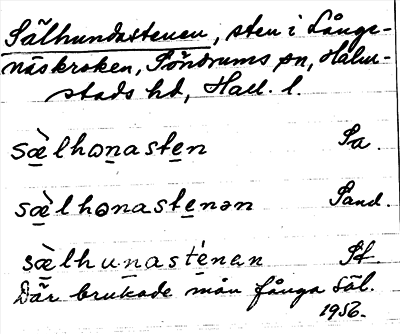 Sälhundastenen, sten i Långe-
näskroken, Söndrums sn, Halm-
stads hd, Hall. l.
sæ̀lhɷnasten Sa.
sæ̀lhɷnastenən Sand.
sæ̀lhunasténen Sf.
Där brukade man fånga säl.
1956.